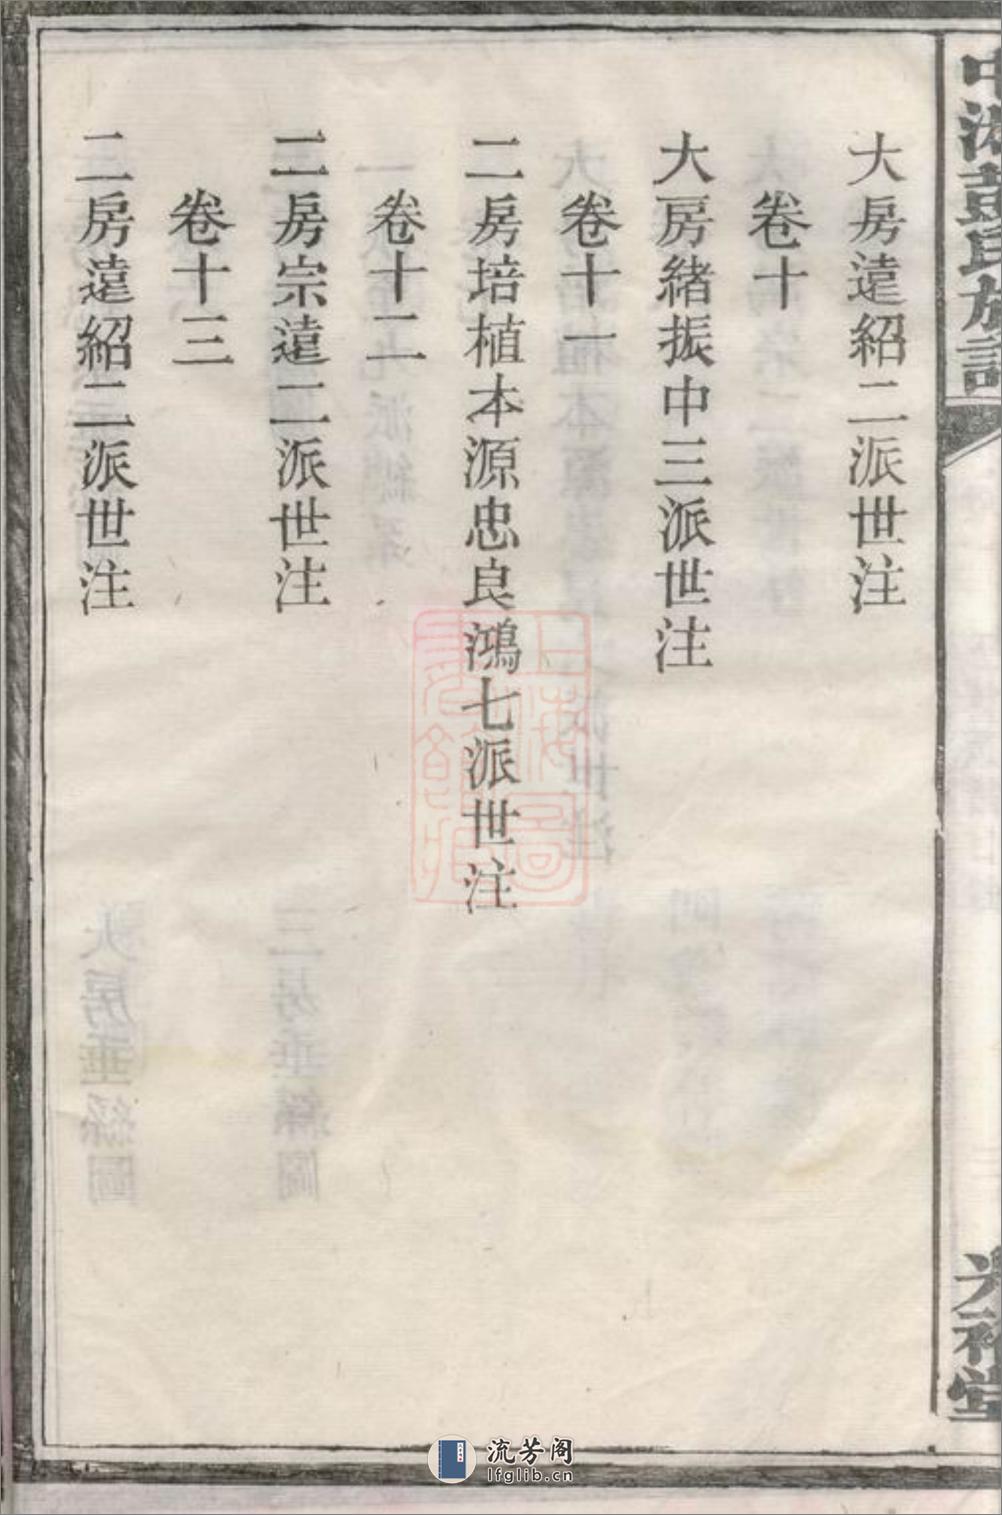 中湘彭氏族譜
光裕堂
大房遠紹二派世注
卷十
大房緒振中三派世注
卷十一
二房培植本源忠良鴻七派世注
卷十二
二房宗遠二派世注
卷十三
二房遠紹二派世注
上海圖
書館藏
流芳阁
lfglib.cn